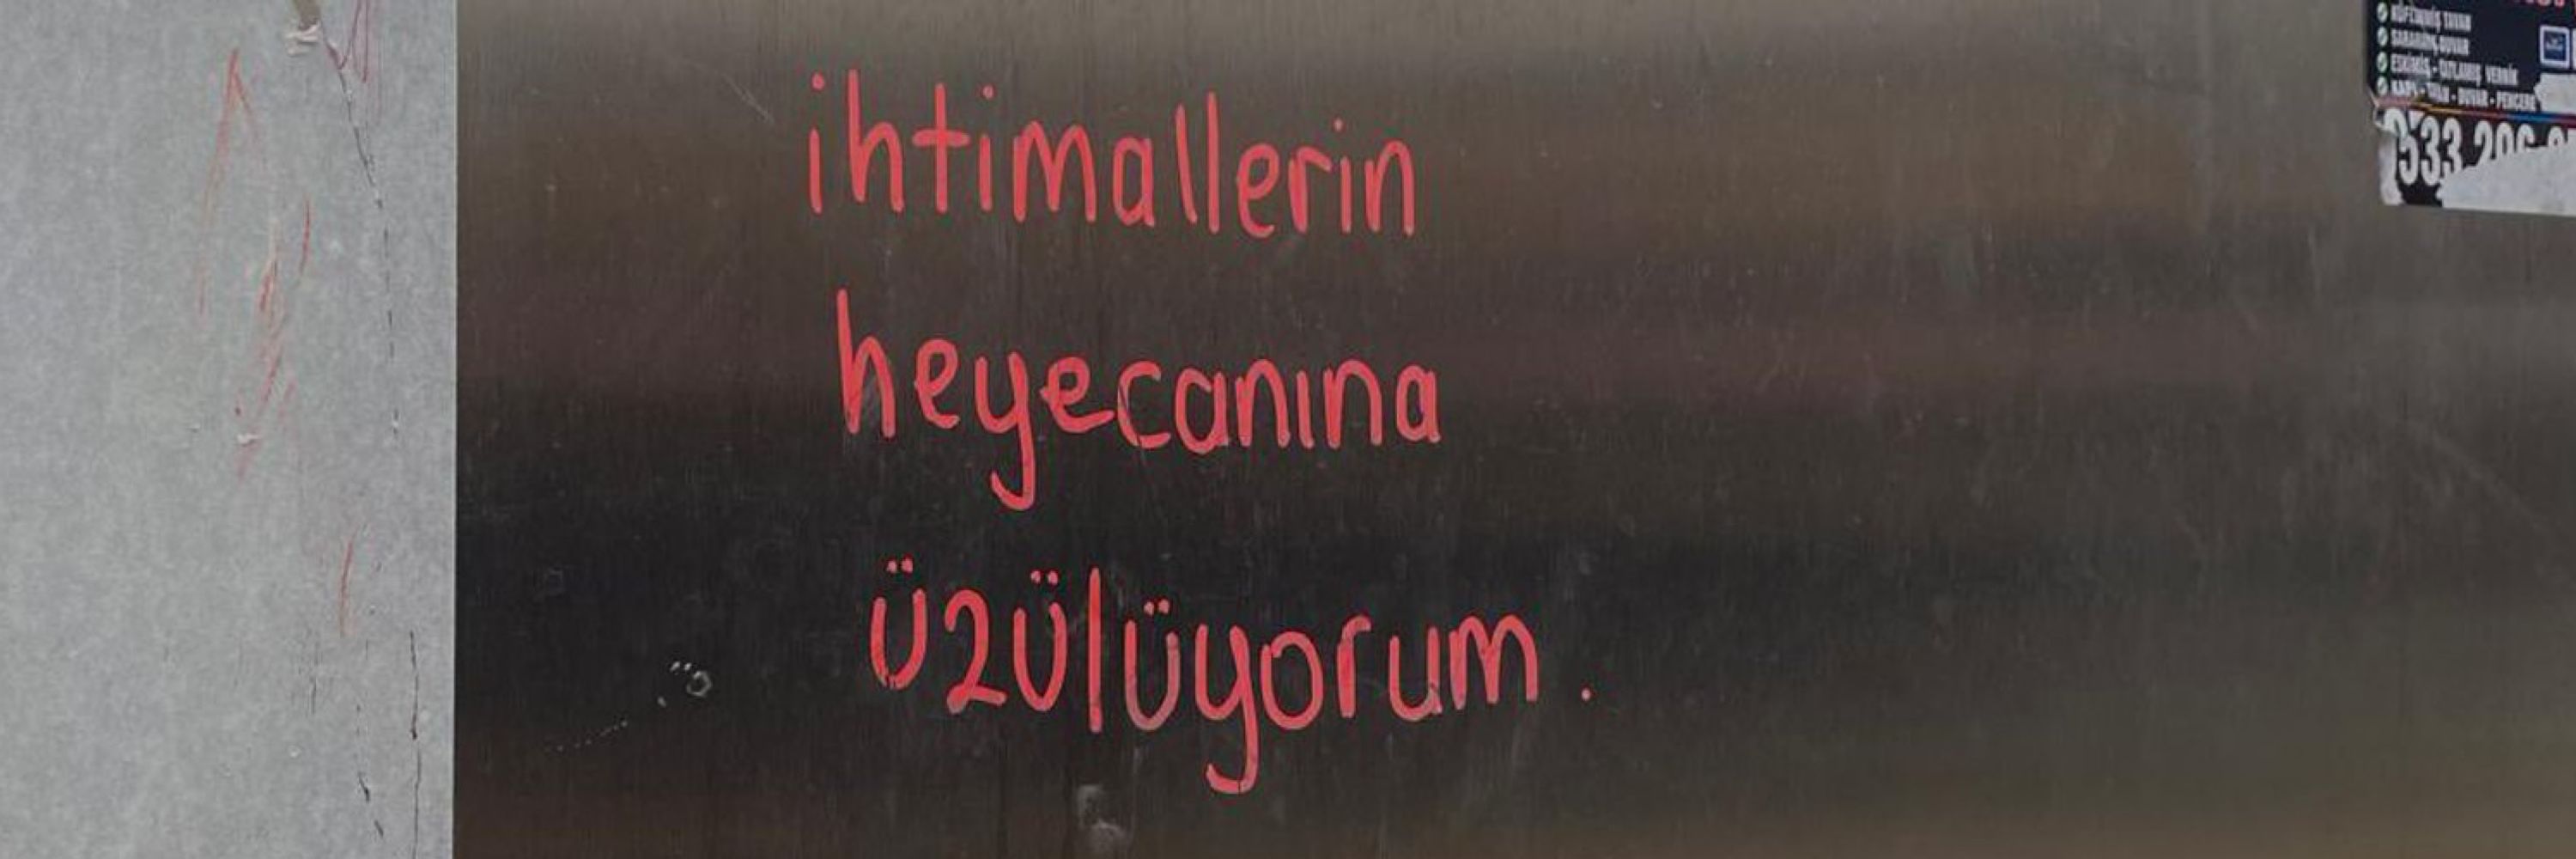 ihtimallerin
heyecanına
üzülüyorum.
SARARMIŞ DUVAR
ESKİMİŞ - ÇATLAMIŞ VERNİK
KAPI - TAVAN - DUVAR - PENCERE
0533